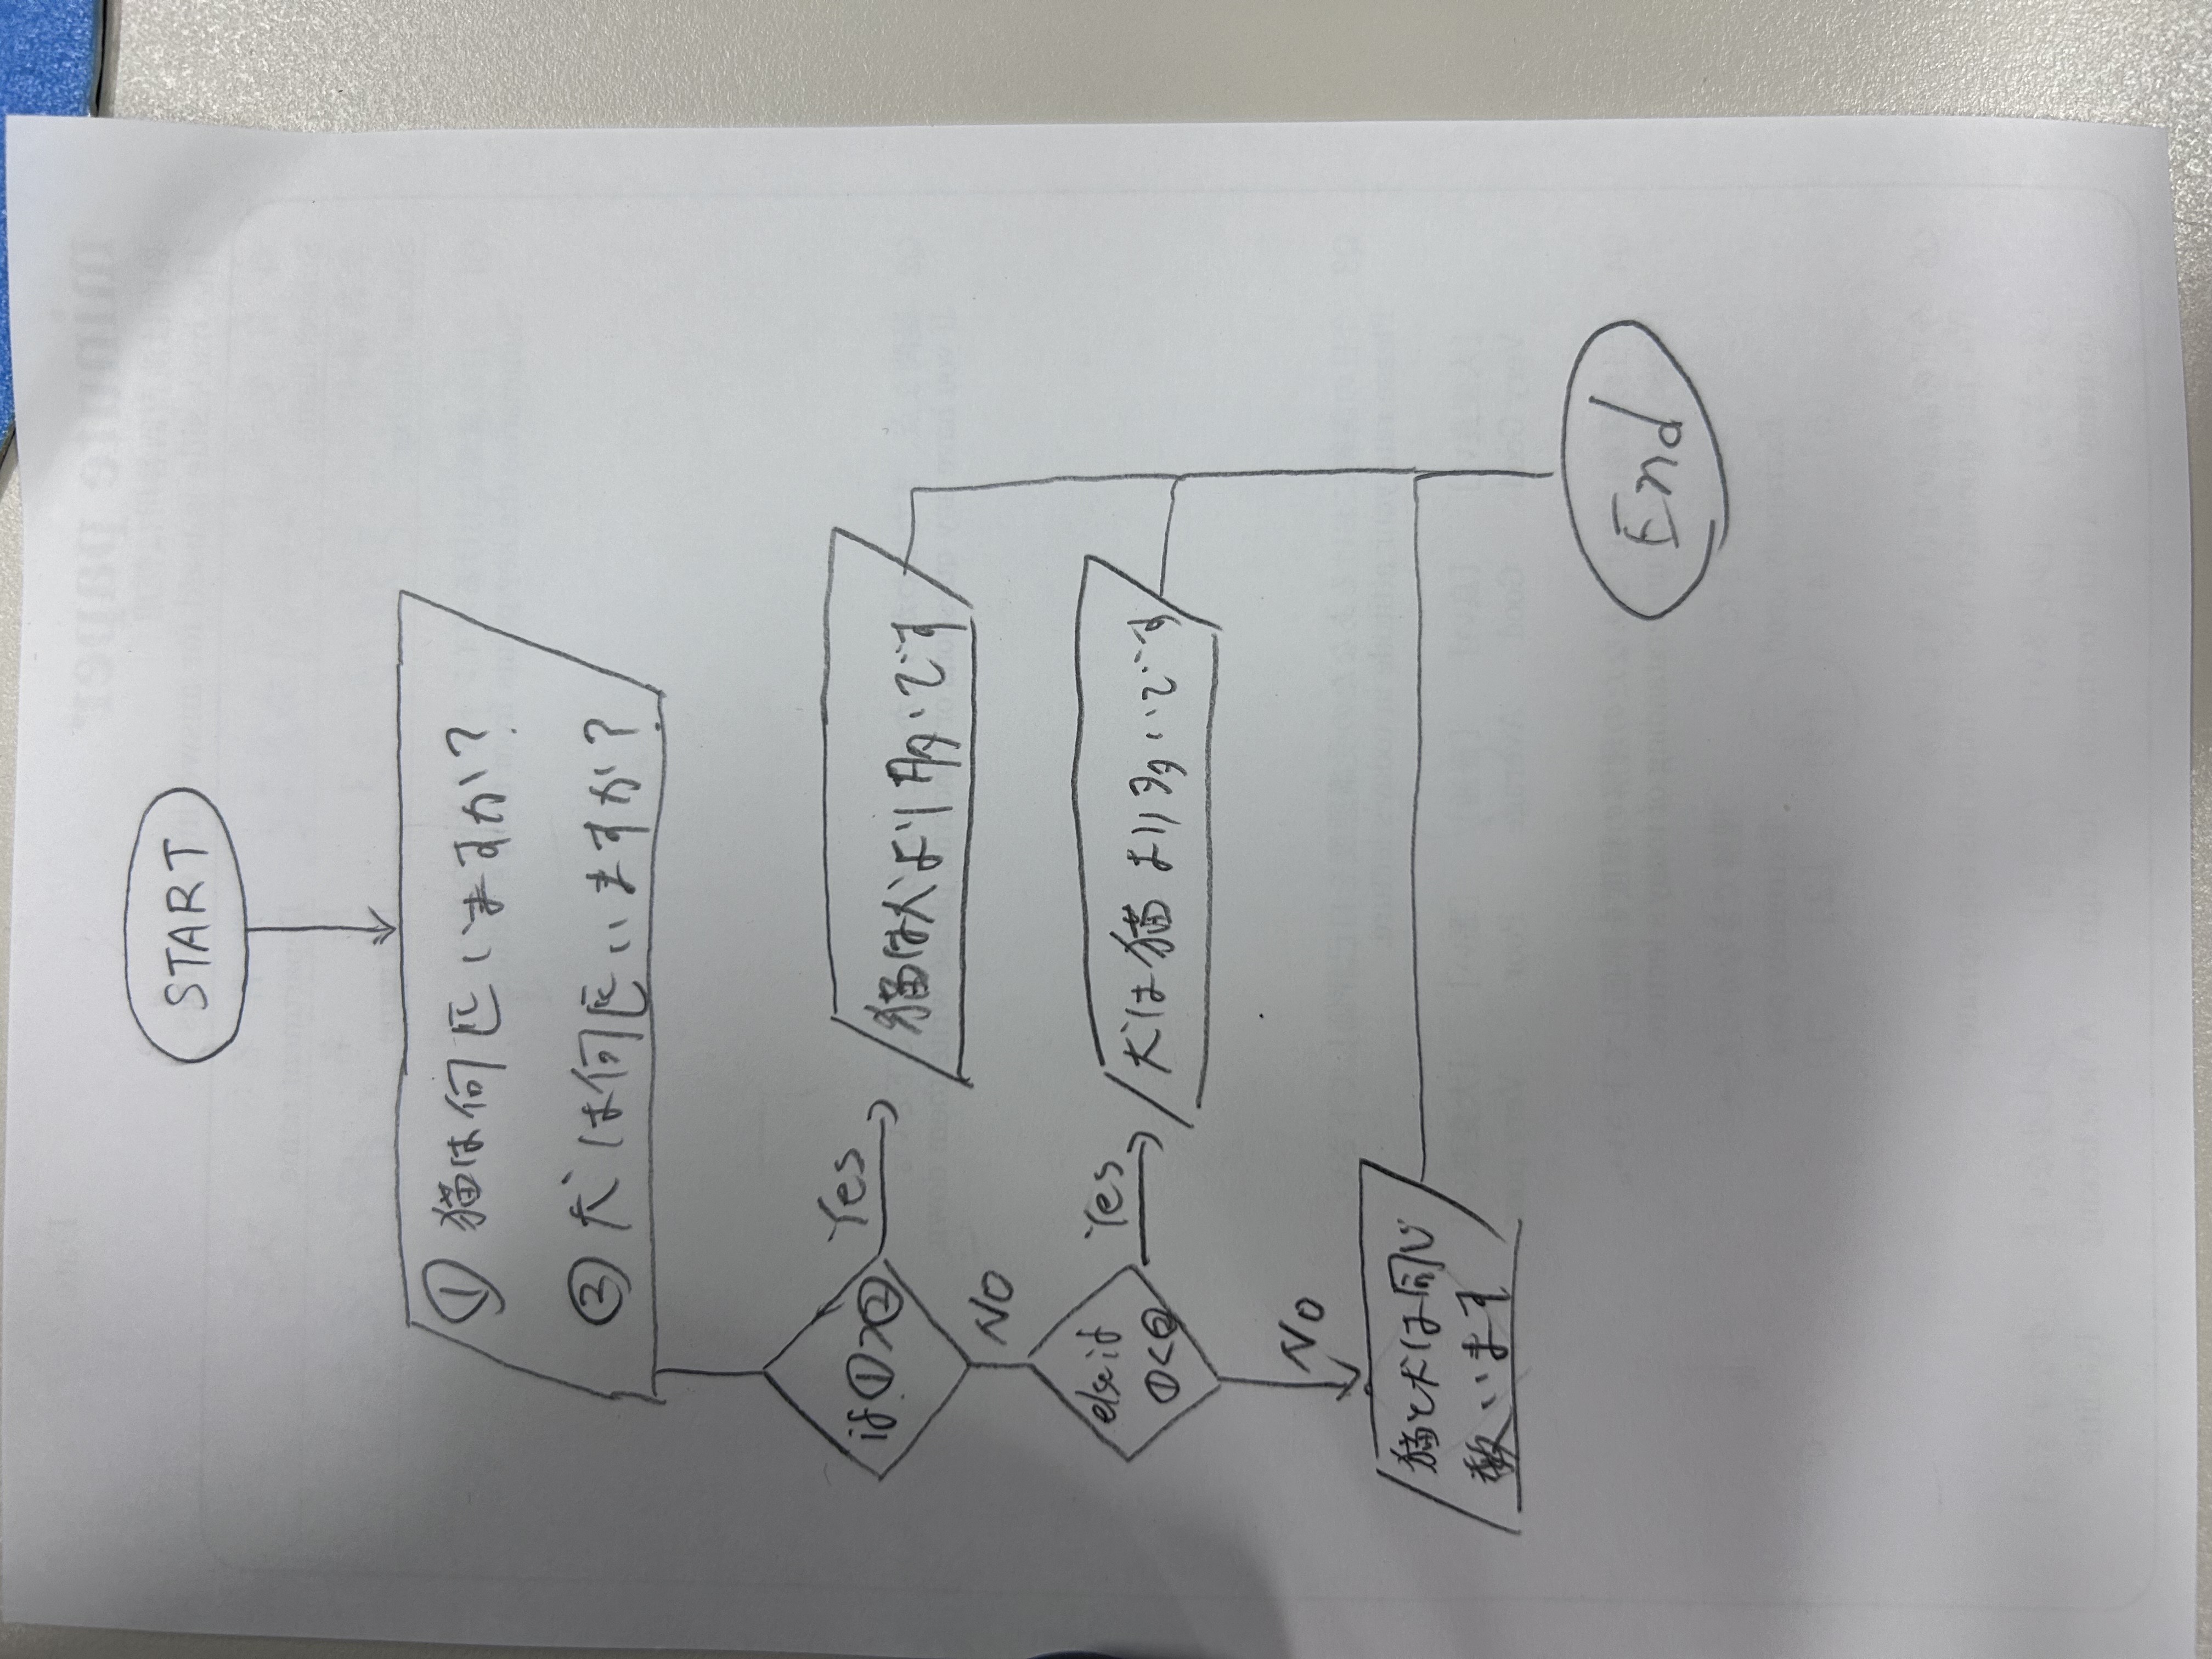 START
① 猫は何匹いますか?
② 犬は何匹いますか?
if ①>②
Yes
猫は犬より多いです
NO
else if
①<②
Yes
犬は猫より多いです
NO
猫と犬は同じ
数います
End
minute paper
Date